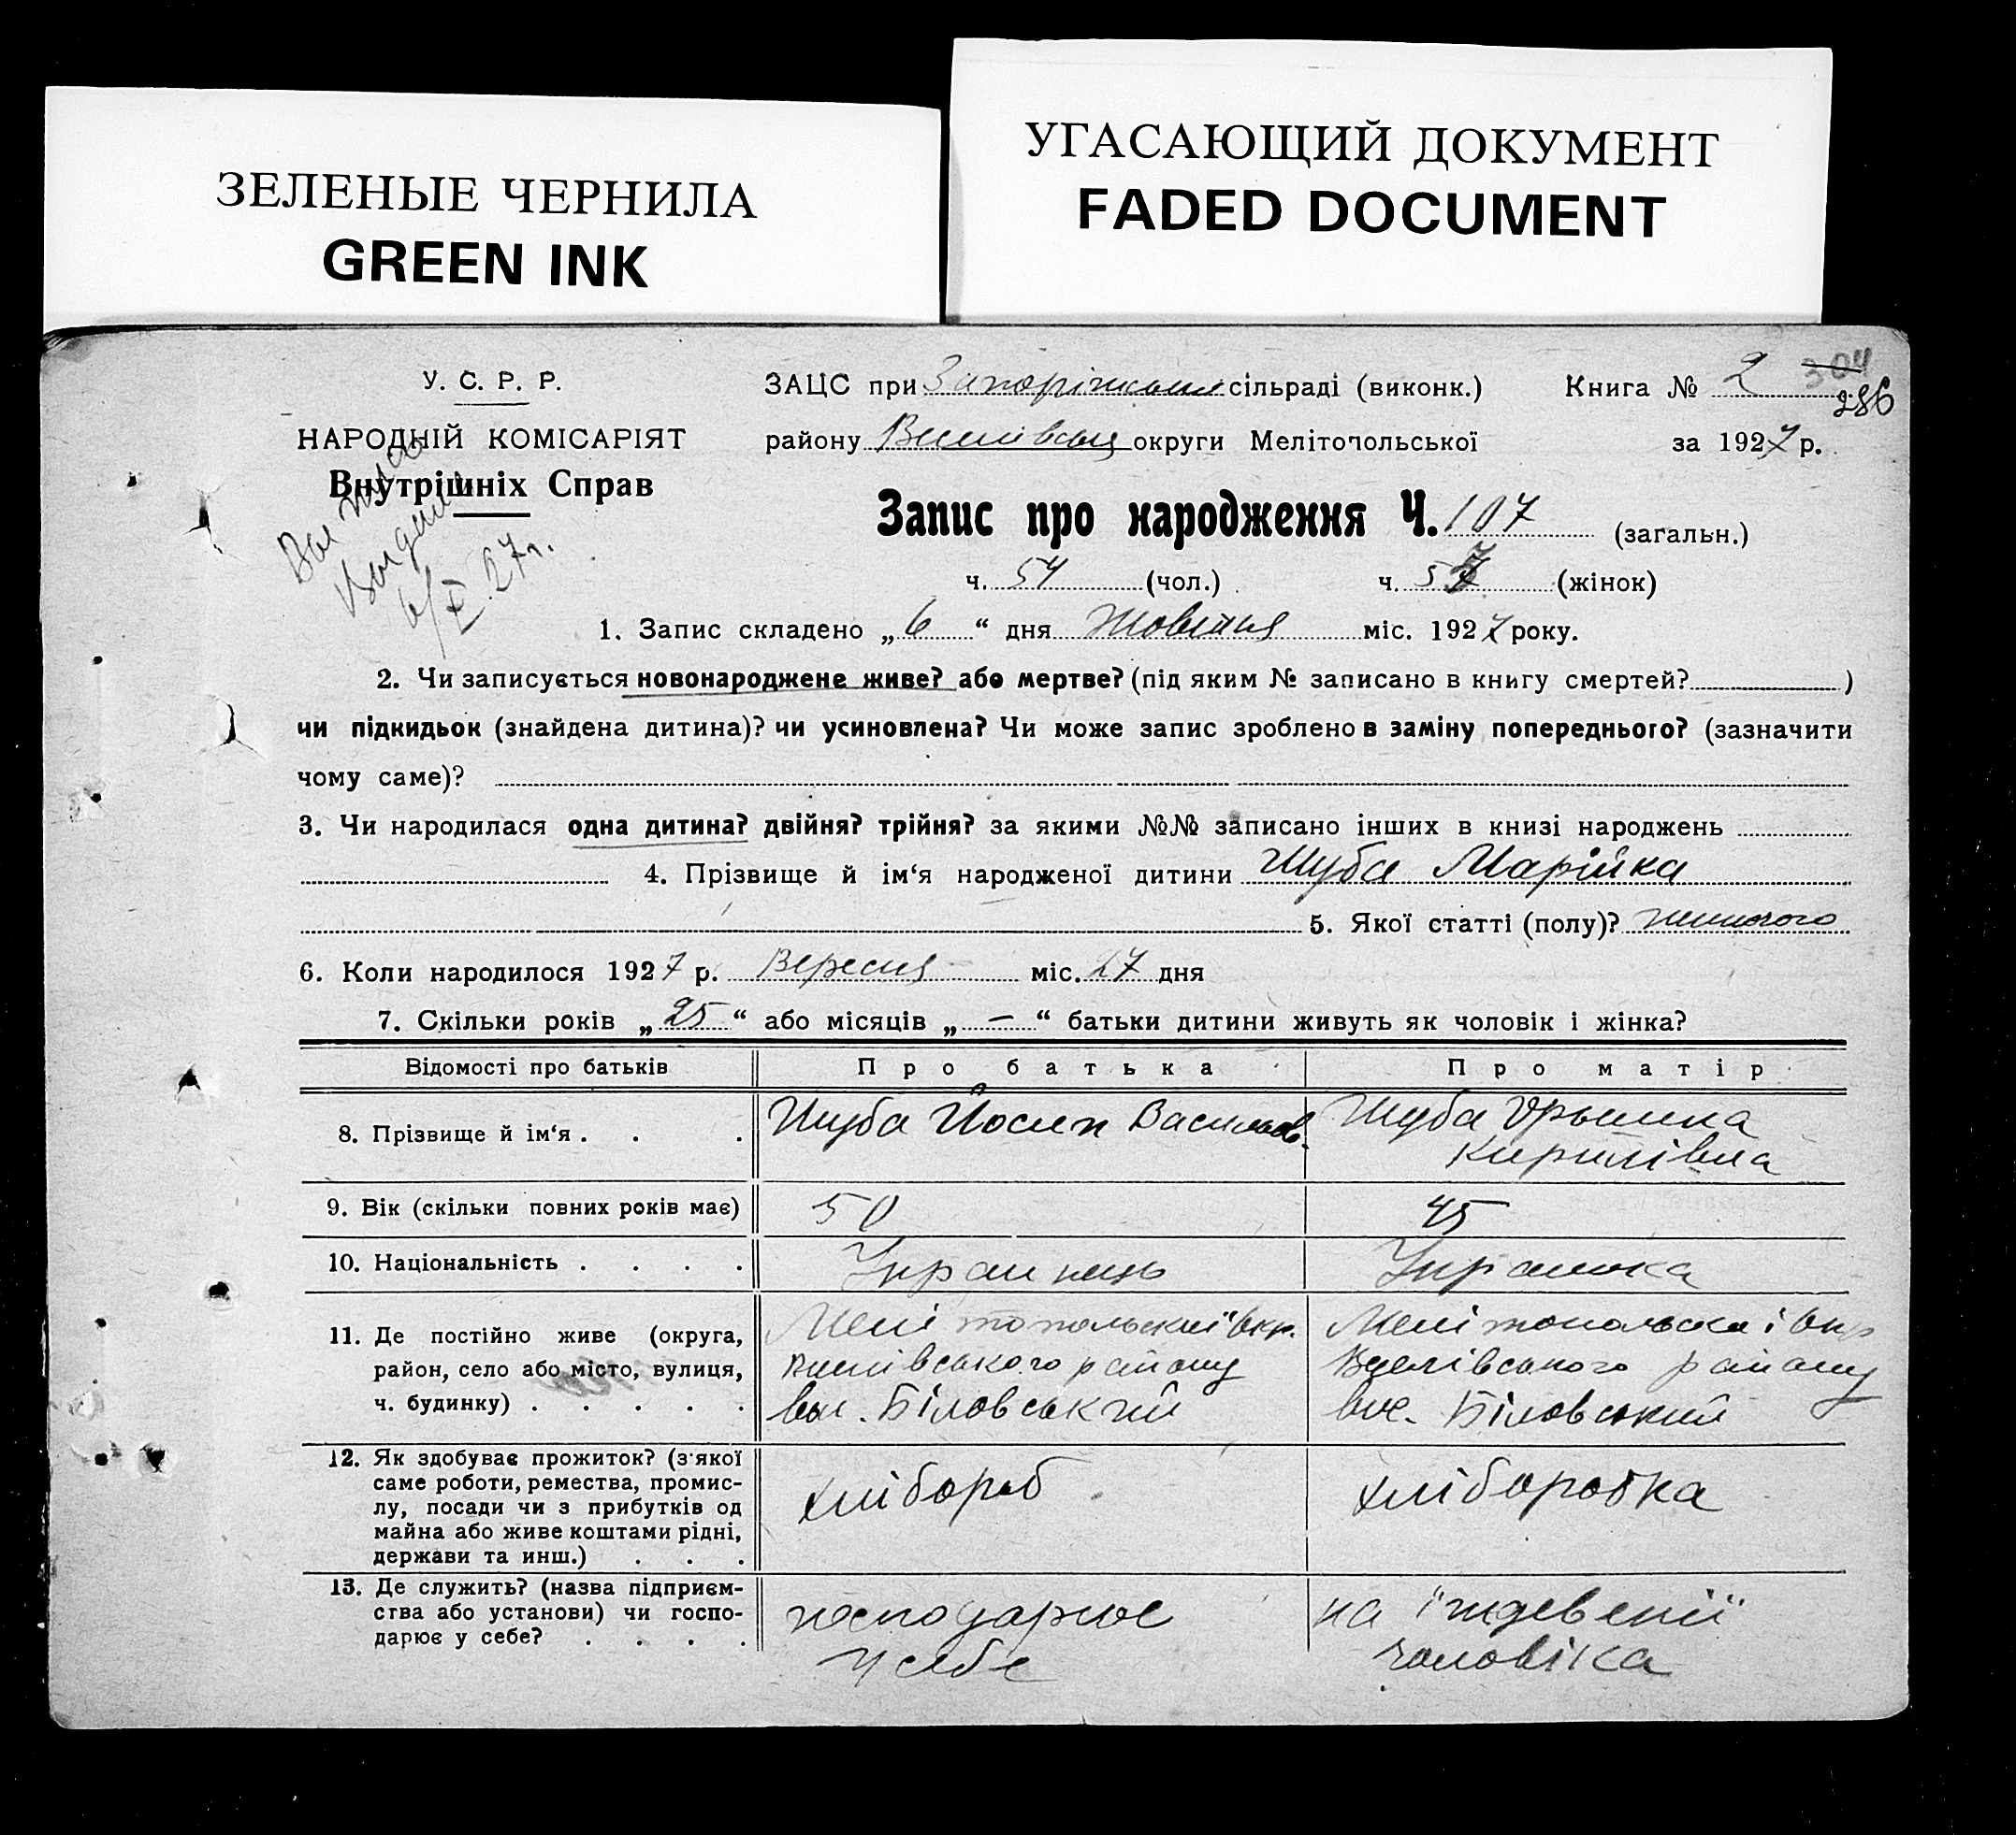 ЗЕЛЕНЫЕ ЧЕРНИЛА
GREEN INK
УГАСАЮЩИЙ ДОКУМЕНТ
FADED DOCUMENT
У. С. Р. Р.
НАРОДНІЙ КОМІСАРІЯТ
Внутрішніх Справ
6/X 27 г.
ЗАЦС при Запоріжський сільраді (виконк.) Книга № 2 304
286
району округи Мелітопольської за 1927 р.
Запис про народження Ч. 107 (загальн.)
ч. 54 (чол.) ч. 53 (жінок)
1. Запис складено „ 6 “ дня Жовтня міс. 1927 року.
2. Чи записується новонароджене живе? або мертве? (під яким № записано в книгу смертей? )
чи підкидьок (знайдена дитина)? чи усиновлена? Чи може запис зроблено в заміну попереднього? (зазначити
чому саме)?
3. Чи народилася одна дитина? двійня? трійня? за якими №№ записано інших в книзі народжень
4. Прізвище й ім‘я народженої дитини Шуба Марійка
5. Якої статті (полу)? жиночого
6. Коли народилося 1927 р. Вересня міс. 27 дня
7. Скільки років „ 25 “ або місяців „ — “ батьки дитини живуть як чоловік і жінка?
Відомості про батьків Про батька Про матір
8. Прізвище й ім‘я . . . Шуба Йосип Васильов. Шуба Орышка
Кирилівна
9. Вік (скільки повних років має) 50 45
10. Національність . . . . Украинець Украинка
11. Де постійно живе (округа, Мелітопольскиї Окр. Мелітопольска і Окр
район, село або місто, вулиця, району району
ч. будинку) . . . . . вис. Біловський вис. Біловский
12. Як здобуває прожиток? (з‘якої
саме роботи, ремества, промис- хлібороб хліборобка
лу, посади чи з прибутків од
майна або живе коштами рідні,
держави та инш.) . . .
13. Де служить? (назва підприєм-
ства або установи) чи госпо- господарює на їждевенії
дарює у себе? . . . . у себе чоловіка